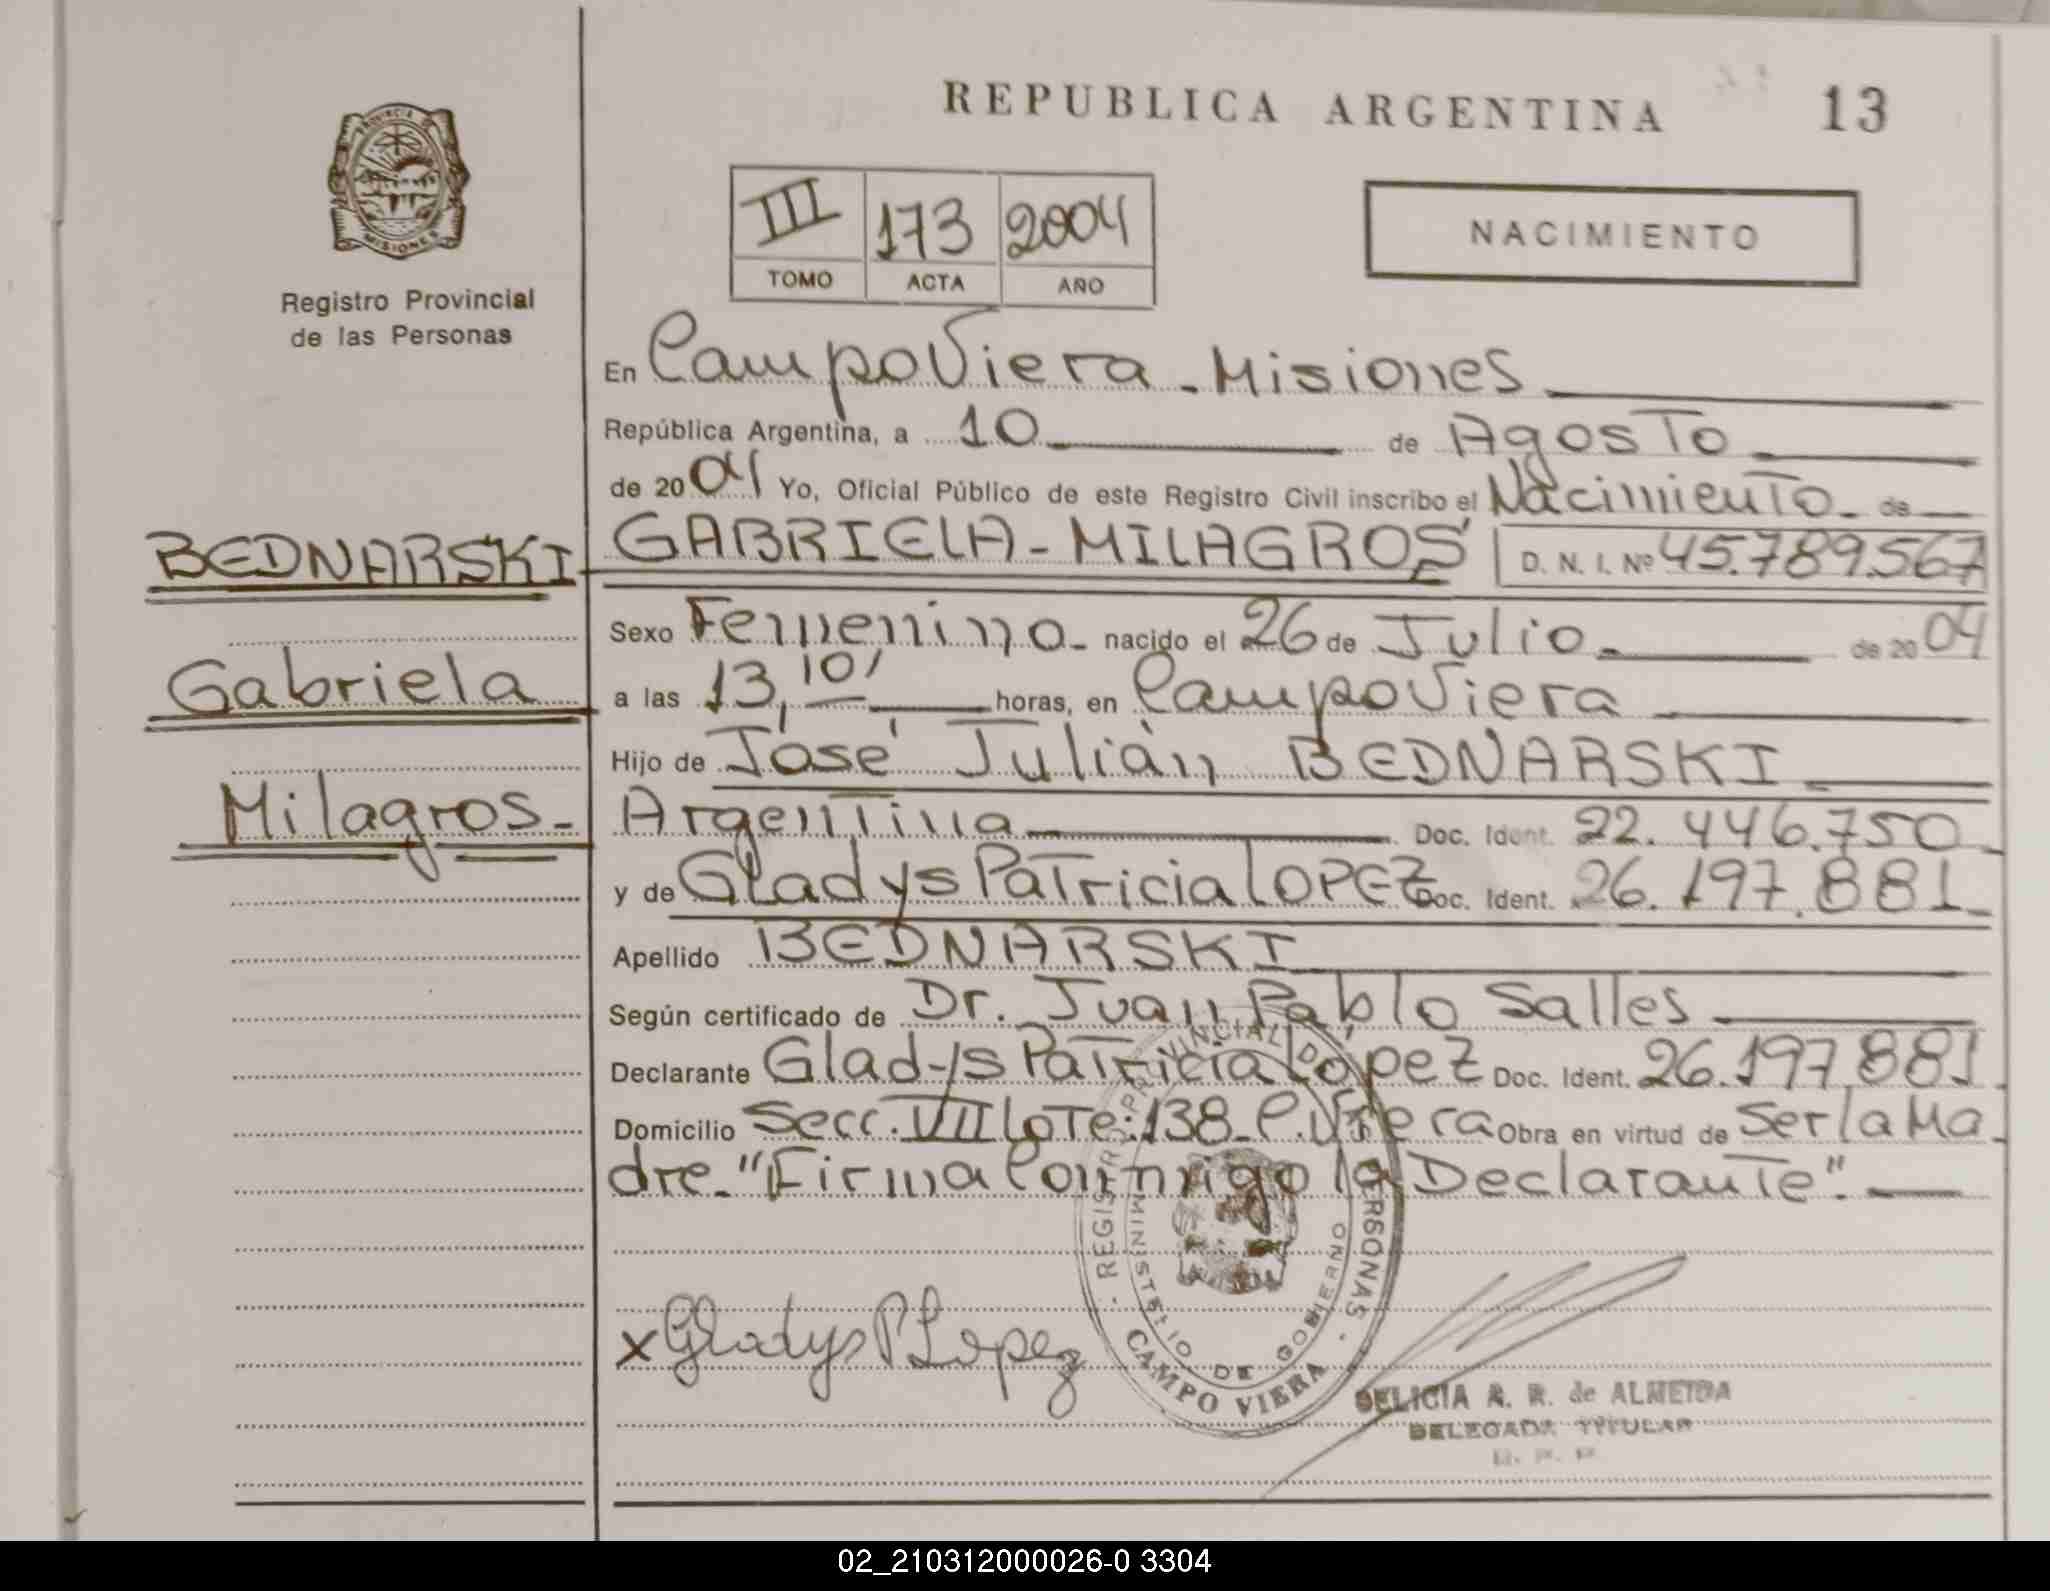 REPUBLICA ARGENTINA 13
PROVINCIA DE
MISIONES
Registro Provincial
de las Personas
III 173 2004
TOMO ACTA AÑO
NACIMIENTO
En Campo Viera - Misiones
República Argentina, a 10 de Agosto
de 2004 Yo, Oficial Público de este Registro Civil inscribo el Nacimiento - de
BEDNARSKI GABRIELA - MILAGROS D. N. I. Nº 45.789.567
Sexo Femenino - nacido el 26 de Julio - de 2004
Gabriela a las 13,10' horas, en Campo Viera
Hijo de José Julián BEDNARSKI
Milagros - Argentina Doc. Ident. 22.446.750
y de Gladys Patricia LOPEZ Doc. Ident. 26.197.881
Apellido BEDNARSKI
Según certificado de Dr. Juan Pablo Salles
Declarante Gladys Patricia López Doc. Ident. 26.197.881
Domicilio Secc. VII Lote: 138 - C. Viera Obra en virtud de Ser la Ma
dre - "Firma Conmigo la Declarante".
x Gladys P Lopez
REGISTRO PROVINCIAL DE PERSONAS
MINISTERIO DE GOBIERNO
CAMPO VIERA
DELICIA A. R. de ALMEIDA
DELEGADA TITULAR
02_210312000026-0 3304